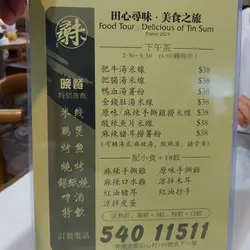 尋
田心尋味．美食之旅
Food Tour . Delicious of Tin Sum
Since 2021
下午茶
2:30-5:30
肥牛湯米線 $38
肥腸湯米線 $38
鴨血湯薯粉 $38
金錢肚湯米線 $38
原味/麻辣手撕雞撈米線 $38
酸辣魚片米線 $38
麻辣豬耳撈薯粉 $38
配小食 +18蚊
麻辣手撕雞 原味手撕雞
麻辣口水雞 涼拌木耳
紅油豬耳 紅油肚子
涼拌蛋皇
晚餐
特別推薦
米線
雞煲
燒烤
啤酒
特飲
訂餐電話
540 11511